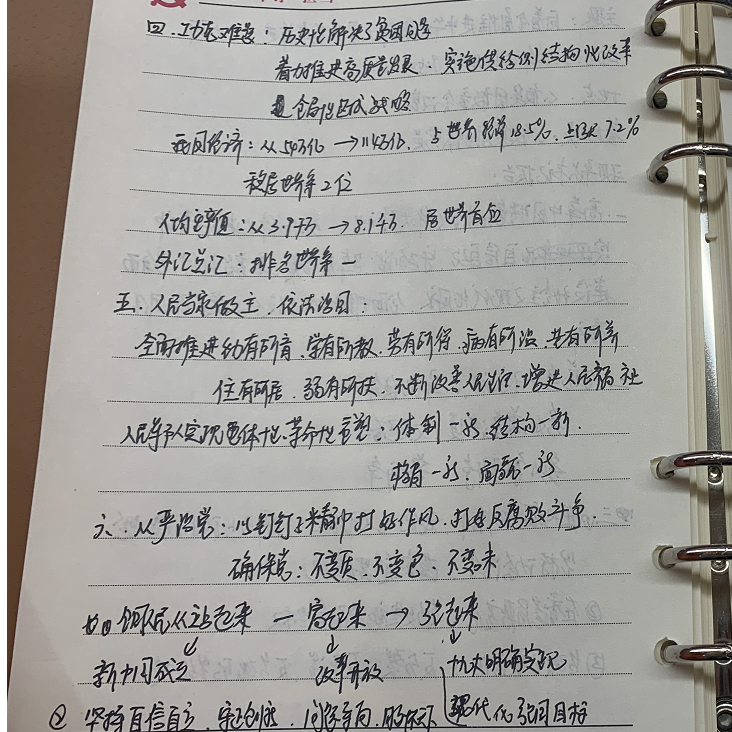 四.攻克难题:历史性解决了贫困问题
着力推进高质量发展 实施供给侧结构性改革
全局性区域战略
我国经济:从54万亿→114万亿.占世界经济18.5%.上升7.2%
稳居世界第2位
人均产值:从3.9万→8.1万. 居世界首位
外汇总汇:排名世界第一
五:人民当家做主.依法治国:
全面推进幼有所育.学有所教.劳有所得.病有所医.老有所养
住有所居.弱有所扶.不断改善人民生活.增进人民福祉
人民军队实现整体性.革命性重塑:体制一新.结构一新.
格局一新.面貌一新
六.从严治党:以钉钉子精神打好作风.打好反腐败斗争
确保党:不变质.不变色.不变味
中国人民从站起来—富起来→强起来
新中国成立 改革开放 十八大明确实现
② 坚持自信自立.守正创新.问题导向. 现代化强国目标